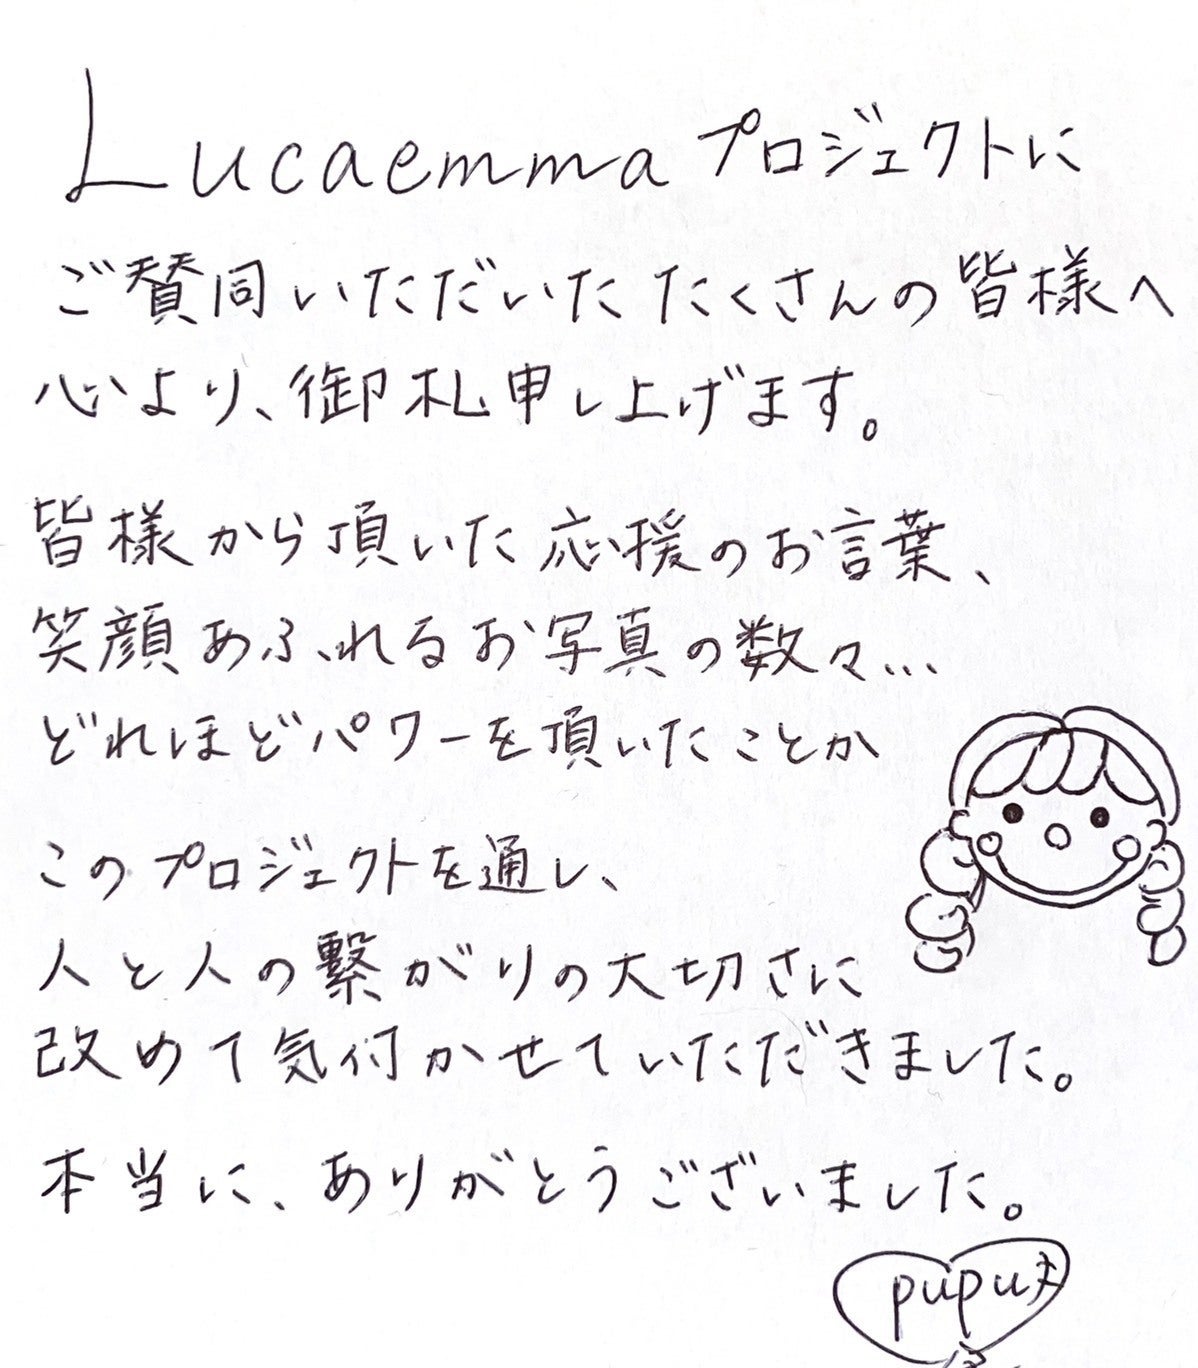 Lucaemmaプロジェクトに
ご賛同いただいたたくさんの皆様へ
心より、御札申し上げます。
皆様から頂いた応援のお言葉、
笑顔あふれるお写真の数々...
どれほどパワーを頂いたことか
このプロジェクトを通し、
人と人の繋がりの大切さに
改めて気付かせていただきました。
本当に、ありがとうございました。
pupu